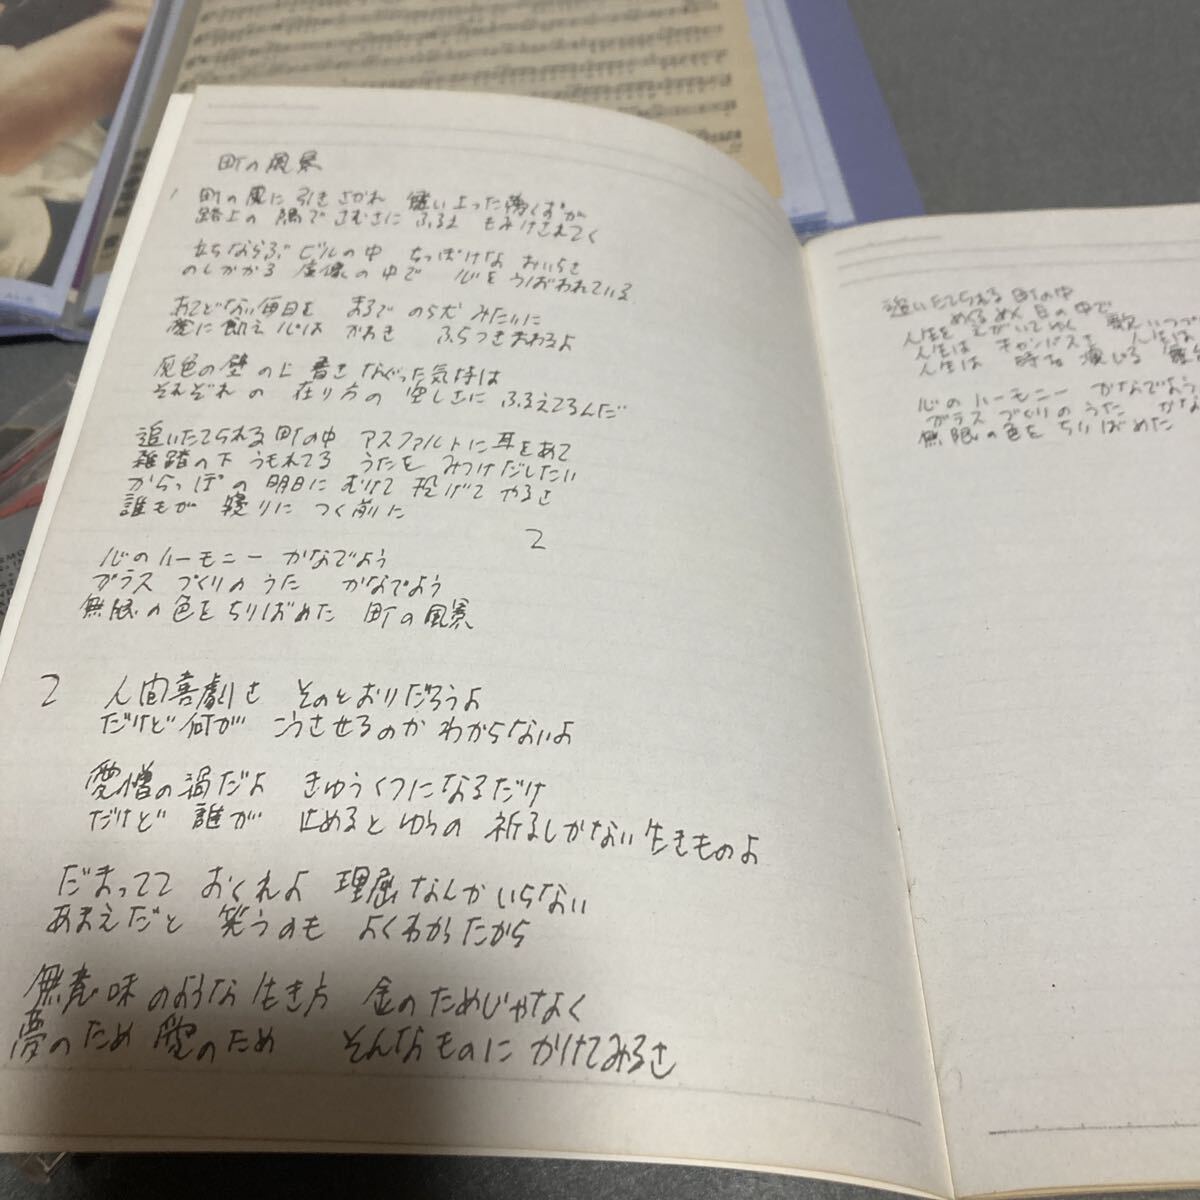 町の風景
町の風に 引きさかれ 舞い上った 夢くずが
路上の 隅で さむさに ふるえ もみけされてく
立ちならぶ ビルの中 ちっぽけな おいらさ
のしかかる 虚像の中で 心を うばわれている
あてどない毎日を まるで のら犬 みたいに
愛に飢え 心は かわき ふらつきまわるよ
灰色の 壁 の上 書き なぐった気持は
それぞれ の 在り方の 空しさに ふるえてるんだ
追いたてられる 町の中 アスファルトに 耳をあて
雑踏の下 うもれてる うたを みつけだしたい
からっぽの 明日に むけて 投げて やるさ
誰もが 寝りに つく前に
2
心の ハーモニー かなでよう
ガラス づくりの うた かなでよう
無限の色を ちりばめた 町の風景
2 人間喜劇さ そのとおりだろうよ
だけど何が こうさせるのか わからないよ
愛憎の渦だよ きゅうくつになるだけ
だけど 誰が 止めると ゆうの 祈るしかない 生きものよ
だまってて おくれよ 理屈なんかいらない
あまえだと 笑うのも よくわかったから
無意味のような 生き方 金のためじゃなく
夢のため 愛のため そんなものに かけてみるさ
追いたてられる 町の中
めくるめく 日の中で
人生を えがいてゆく 歌いつづ
人生は キャンバスさ 人生は
人生は 時を 演じる 舞台
心の ハーモニー かなでよう
ガラス づくりの うた かな
無限の色を ちりばめた